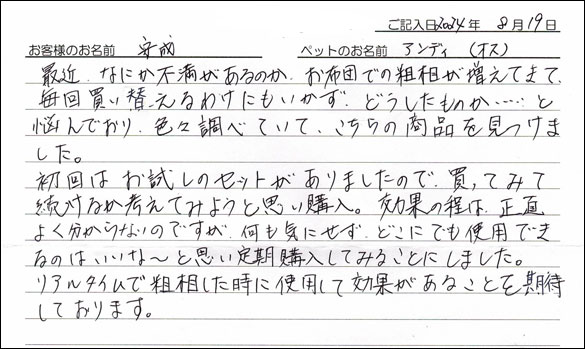 ご記入日2024年 8月19日
お客様のお名前 安成 ペットのお名前 アンディ(オス)
最近、なにか不満があるのか、お布団での粗相が増えてきて、
毎回買い替えるわけにもいかず、どうしたものか……と
悩んでおり、色々調べていて、こちらの商品を見つけま
した。
初回はお試しのセットがありましたので、買ってみて
続けるか考えてみようと思い購入。効果の程は、正直
よく分からないのですが、何も気にせず、どこにでも使用でき
るのはいいな~と思い定期購入してみることにしました。
リアルタイムで粗相した時に使用して効果があることを期待
しております。